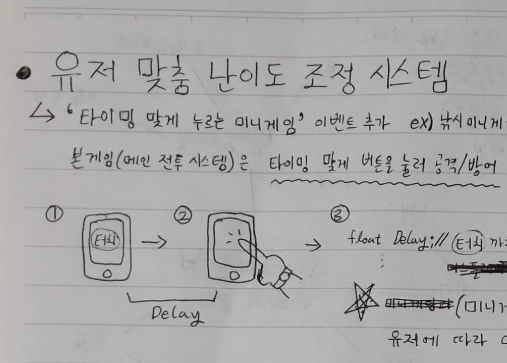 유저 맞춤 난이도 조정 시스템
↳ '타이밍 맞게 누르는 미니게임' 이벤트 추가 ex) 낚시미니게
본게임(메인 전투 시스템)은 타이밍 맞게 버튼을 눌러 공격/방어
① ② ③
터치
float Delay; // 터치 까
Delay
(미니게
유저에 따라